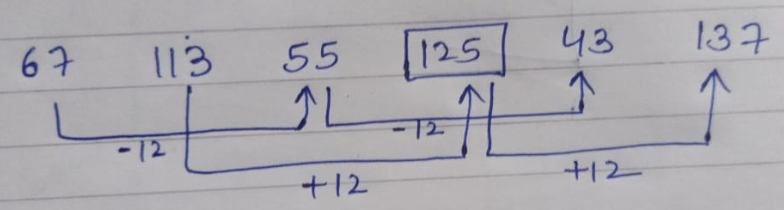 67 113 55 125 43 137
-12 -12
+12 +12